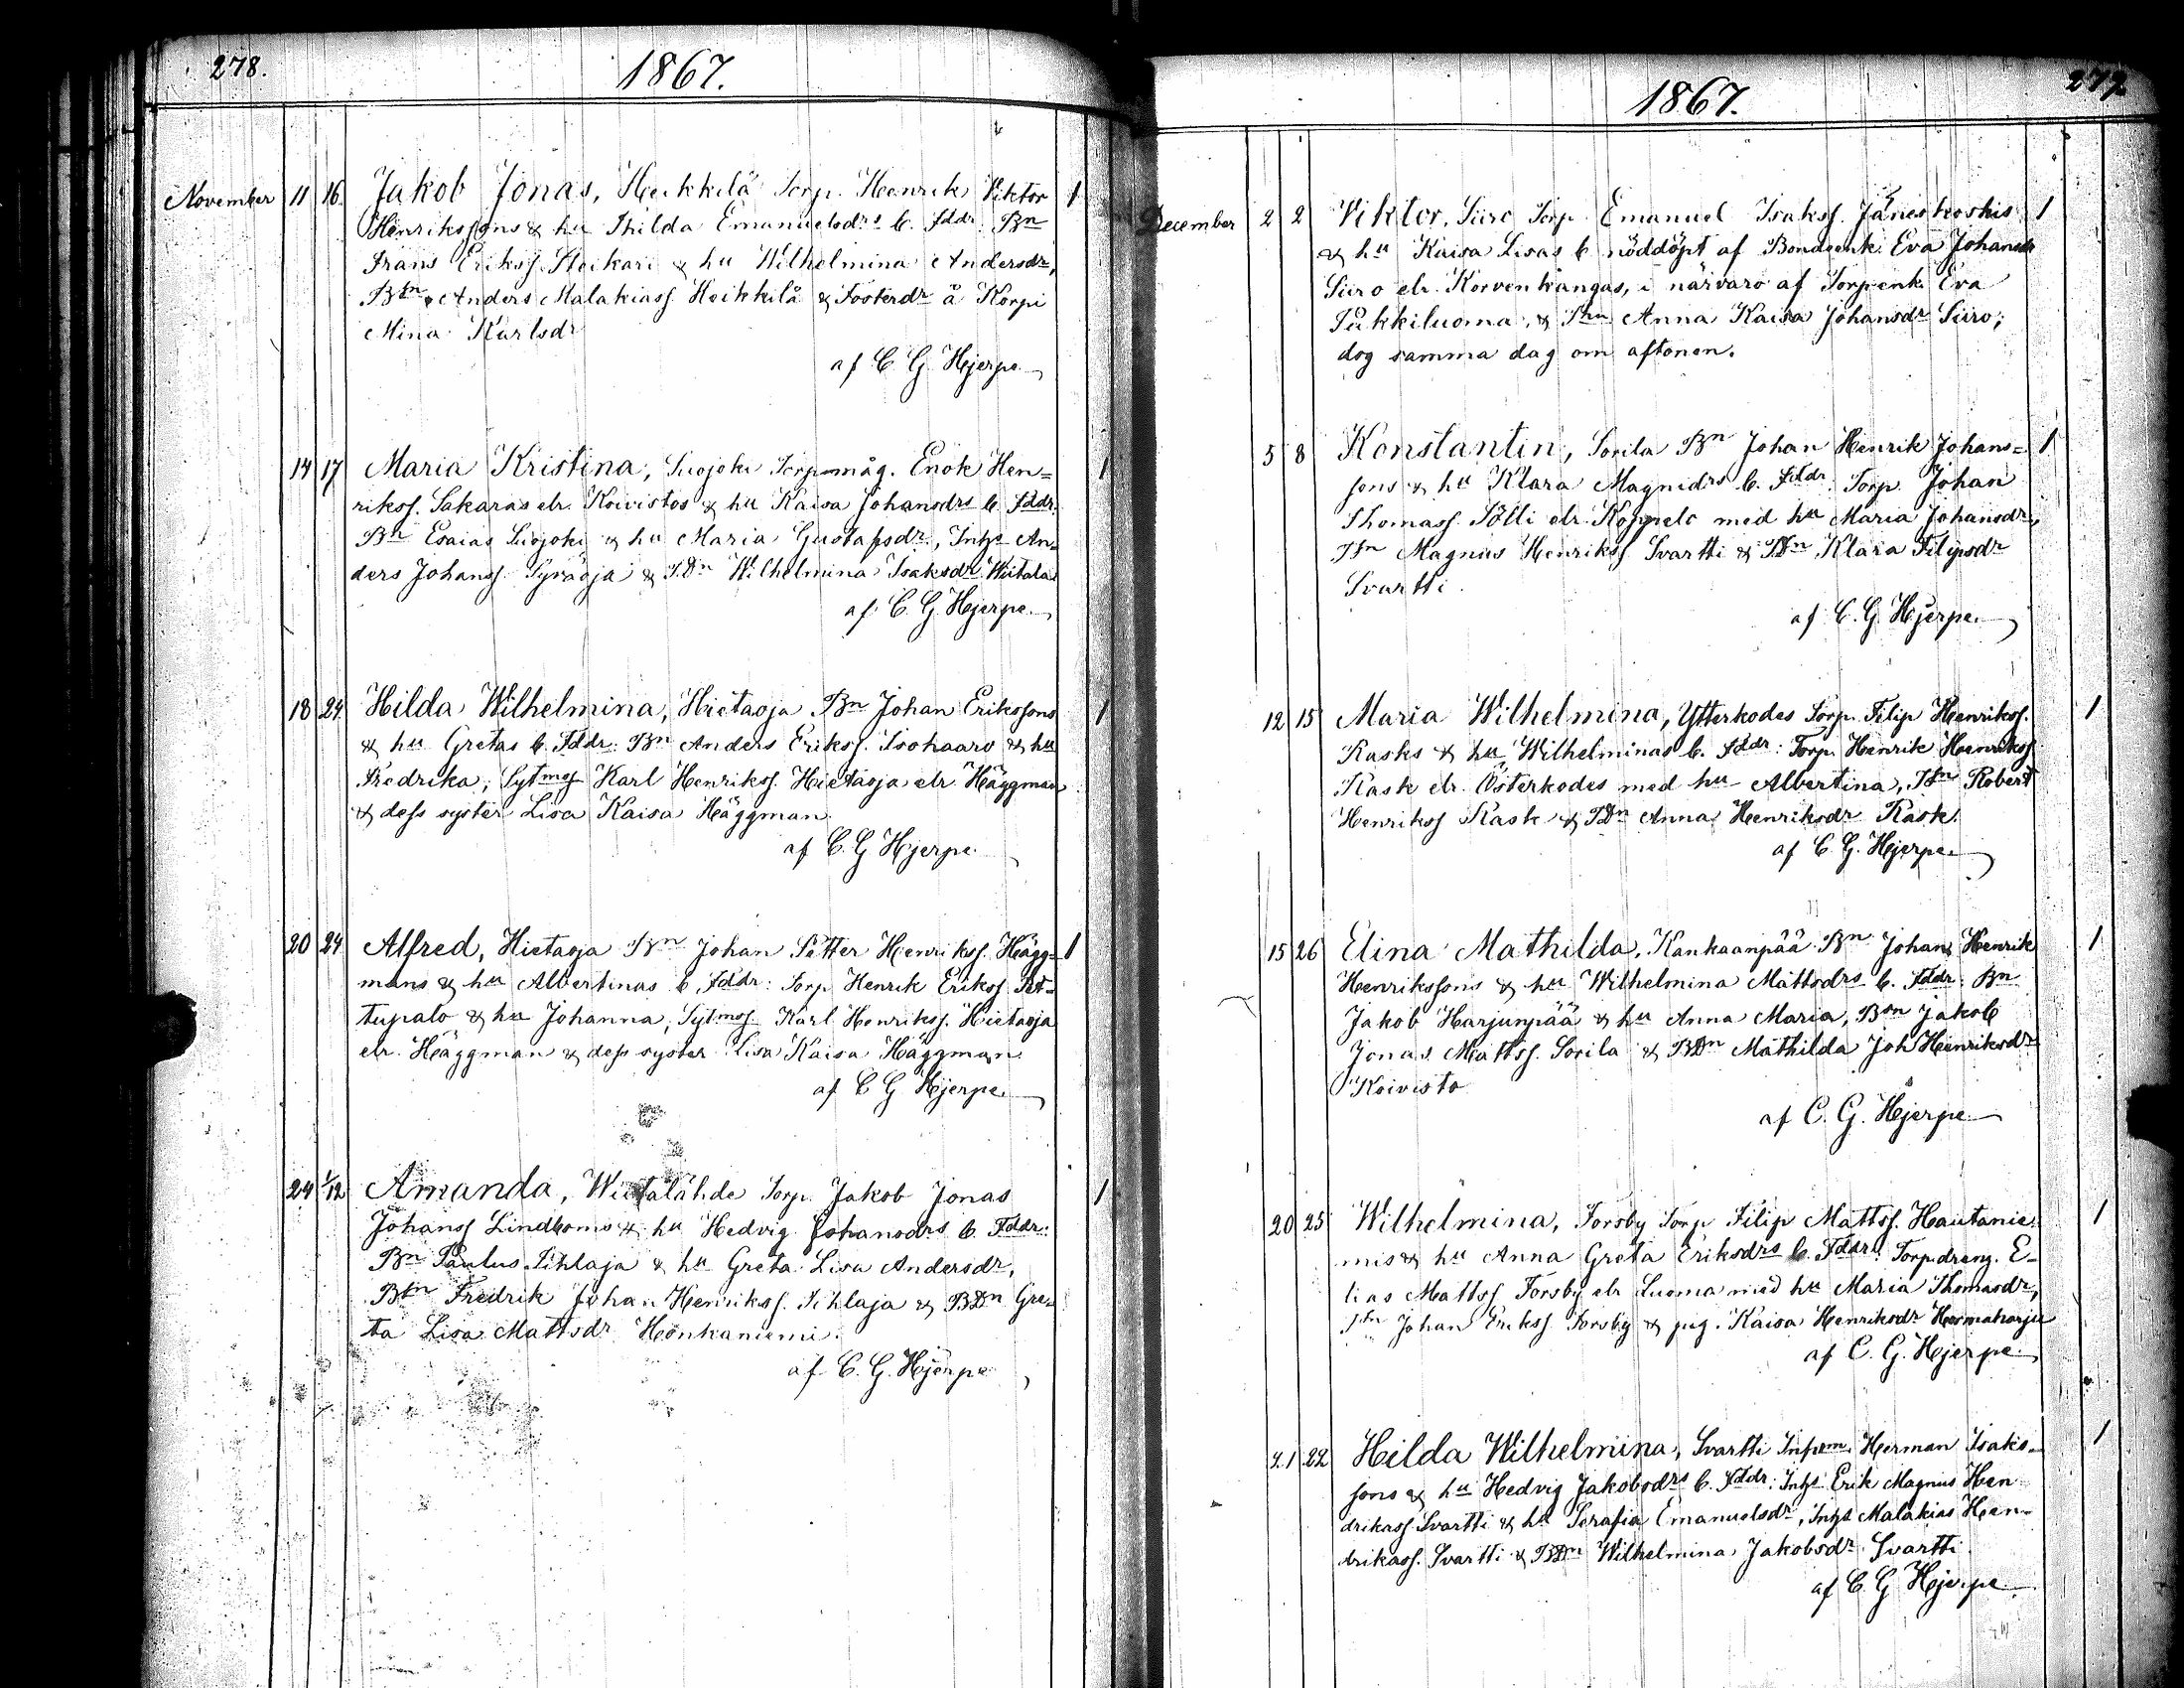 278.
1867.
November 11 16. Jakob Jonas, Heikkilä Torp. Henrik Viktor 1
Henrikssons & hu Thilda Emanuelsdrs b. Fddr. Bn
Frans Erikss. Steikari & hu Wilhelmina Andersdr,
Btn Anders Malakiass. Heikkilä & Fosterdr å Korpi
Mina Karlsdr
af C G Hjerpe
14 17 Maria Kristina, Suojoki Torpmåg. Enok Hen= 1
rikss. Sakaras elr. Koivistos & hu Kaisa Johansdrs b. Fddr.
Bn Esaias Suojoki & hu Maria Gustafsdr, Inhs An=
ders Johanss. Syräoja & TDn Wilhelmina Isaksdr Wiitala
af C. G. Hjerpe.
18 24. Hilda Wilhelmina, Hietaoja Bn Johan Erikssons 1
& hu Gretas b. Fddr: Bn Anders Erikss. Isohaaro & hu
Fredrika; Sytmos Karl Henrikss. Hietaoja elr Häggman
& dess syster Lisa Kaisa Häggman.
af C. G Hjerpe.
20 24 Alfred, Hietaoja Bn Johan Petter Henrikss. Hägg= 1
mans & hu Albertinas b. Fddr: Torp Henrik Erikss Pet=
tupalo & hu Johanna; Sytmos Karl Henrikss. Hietaoja
elr. Häggman & dess syster Lisa Kaisa Häggman
af C G Hjerpe.
24 1/12 Amanda, Wiitalähde Torp. Jakob Jonas 1
Johanss Lindboms & hu Hedvig Johansdrs b. Fddr:
Bn Paulus Pihlaja & hu Greta Lisa Andersdr,
Btn Fredrik Johan Henrikss. Pihlaja & BDn Gre=
ta Lisa Mattsdr Honkaniemi.
af C. G. Hjerpe
277
1867.
December 2 2 Viktor, Siiro Torp Emanuel Isakss. Jäneskoskis 1
& hu Kaisa Lisas b nöddöpt af Bondeenk. Eva Johansdr
Siiro elr. Korvenkangas, i närvaro af Torpenk. Eva
Pukkiluoma, & Thu Anna Kaisa Johansdr Siiro;
dog samma dag om aftonen.
5 8 Konstantin, Sorila Bn Johan Henrik Johans= 1
sons & hu Klara Magnidrs b. Fddr: Torp. Johan
Thomass. Pölli elr. Koppelo med hu Maria Johansdr,
Tsn Magnus Henrikss Svartti & TDn Klara Filipsdr
Svartti.
af C. G. Hjerpe.
12 15 Maria Wilhelmina, Ytterkodes Torp. Filip Henrikss. 1
Rasks & hu Wilhelminas b. Fddr: Torp. Henrik Henrikss
Rask elr. Österkodes med hu Albertina, Tsn Robert
Henrikss Rask & TDn Anna Henriksdr Rask.
af C. G. Hjerpe.
15 26 Elina Mathilda, Kankaanpää Bn Johan Henrik 1
Henrikssons & hu Wilhelmina Mattsdrs b. Fddr: Bn
Jakob Harjunpää & hu Anna Maria, Bsn Jakob
Jonas Mattss. Sorila & BDn Mathilda Joh Henriksdr
Koivisto
af C. G. Hjerpe.
20 25 Wilhelmina, Forsby Torp Filip Mattss. Hautanie= 1
mis & hu Anna Greta Eriksdrs b. Fddr: Torpdreng. E=
lias Mattss Forsby elr Luoma med hu Maria Thomasdr,
Tsn Johan Erikss. Forsby & pig. Kaisa Henriksdr Harmaharju
af C. G. Hjerpe.
21 22 Hilda Wilhelmina, Svartti Inhsm. Herman Isaks= 1
sons & hu Hedvig Jakobsdrs b. Fddr: Inhs Erik Magnus Hen
drikass. Svartti & hu Serafia Emanuelsdr, Inhs Malakias Hen=
drikass. Svartti & BDn Wilhelmina Jakobsdr Svartti.
af C. G Hjerpe.